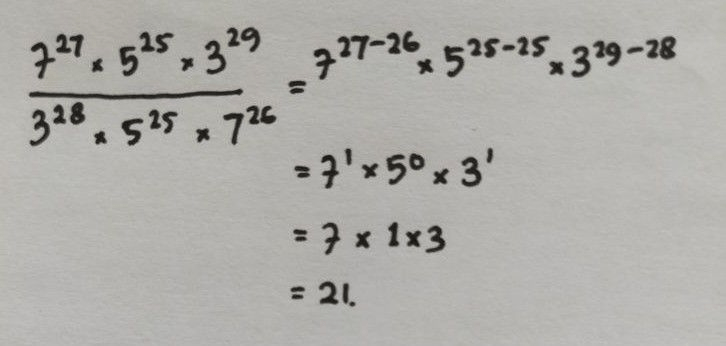 7²⁷ × 5²⁵ × 3²⁹ / 3²⁸ × 5²⁵ × 7²⁶ = 7²⁷⁻²⁶ × 5²⁵⁻²⁵ × 3²⁹⁻²⁸
= 7¹ × 5⁰ × 3¹
= 7 × 1 × 3
= 21.